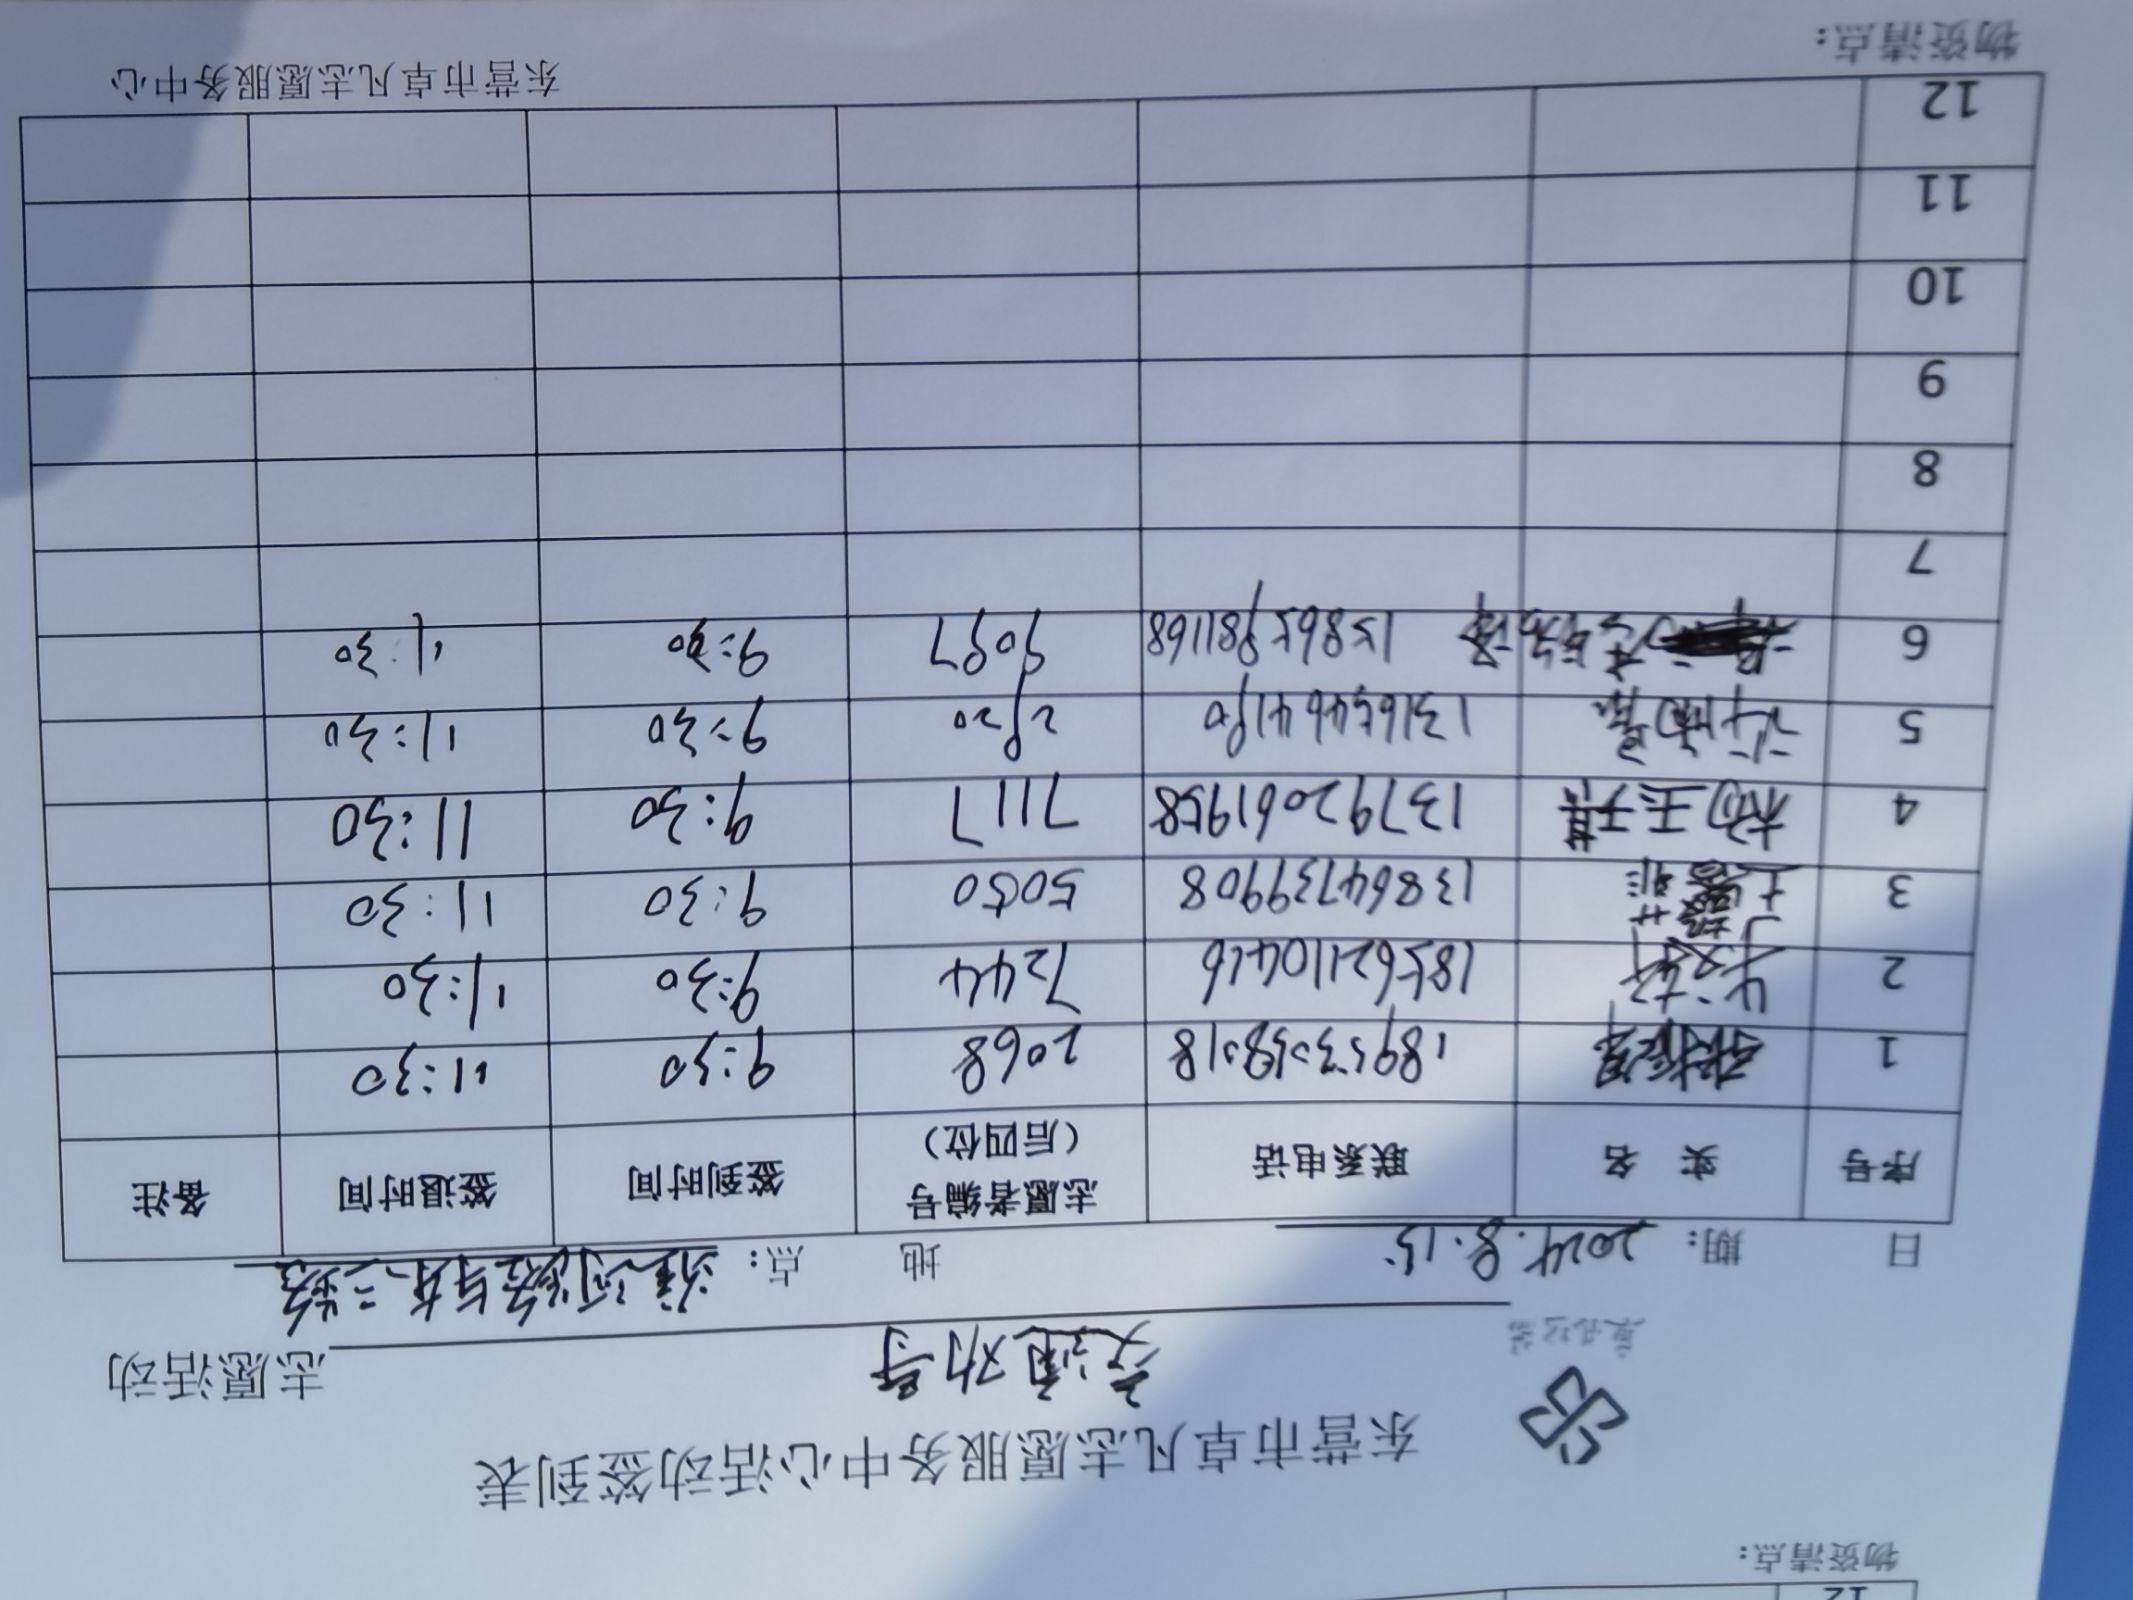 物资清点：
东营市卓凡志愿服务中心活动签到表
交通劝导 志愿活动
日 期：2024.8.15 地 点：淮河路与东二路
序号 实 名 联系电话 志愿者编号（后四位） 签到时间 签退时间 备注
1 2068 9:30 11:30
2 18562110416 7244 9:30 11:30
3 13864739908 5050 9:30 11:30
4 杨玉祺 13792061958 7117 9:30 11:30
5 13165464180 2820 9:30 11:30
6 15865981168 9097 9:30 11:30
7
8
9
10
11
12
物资清点： 东营市卓凡志愿服务中心